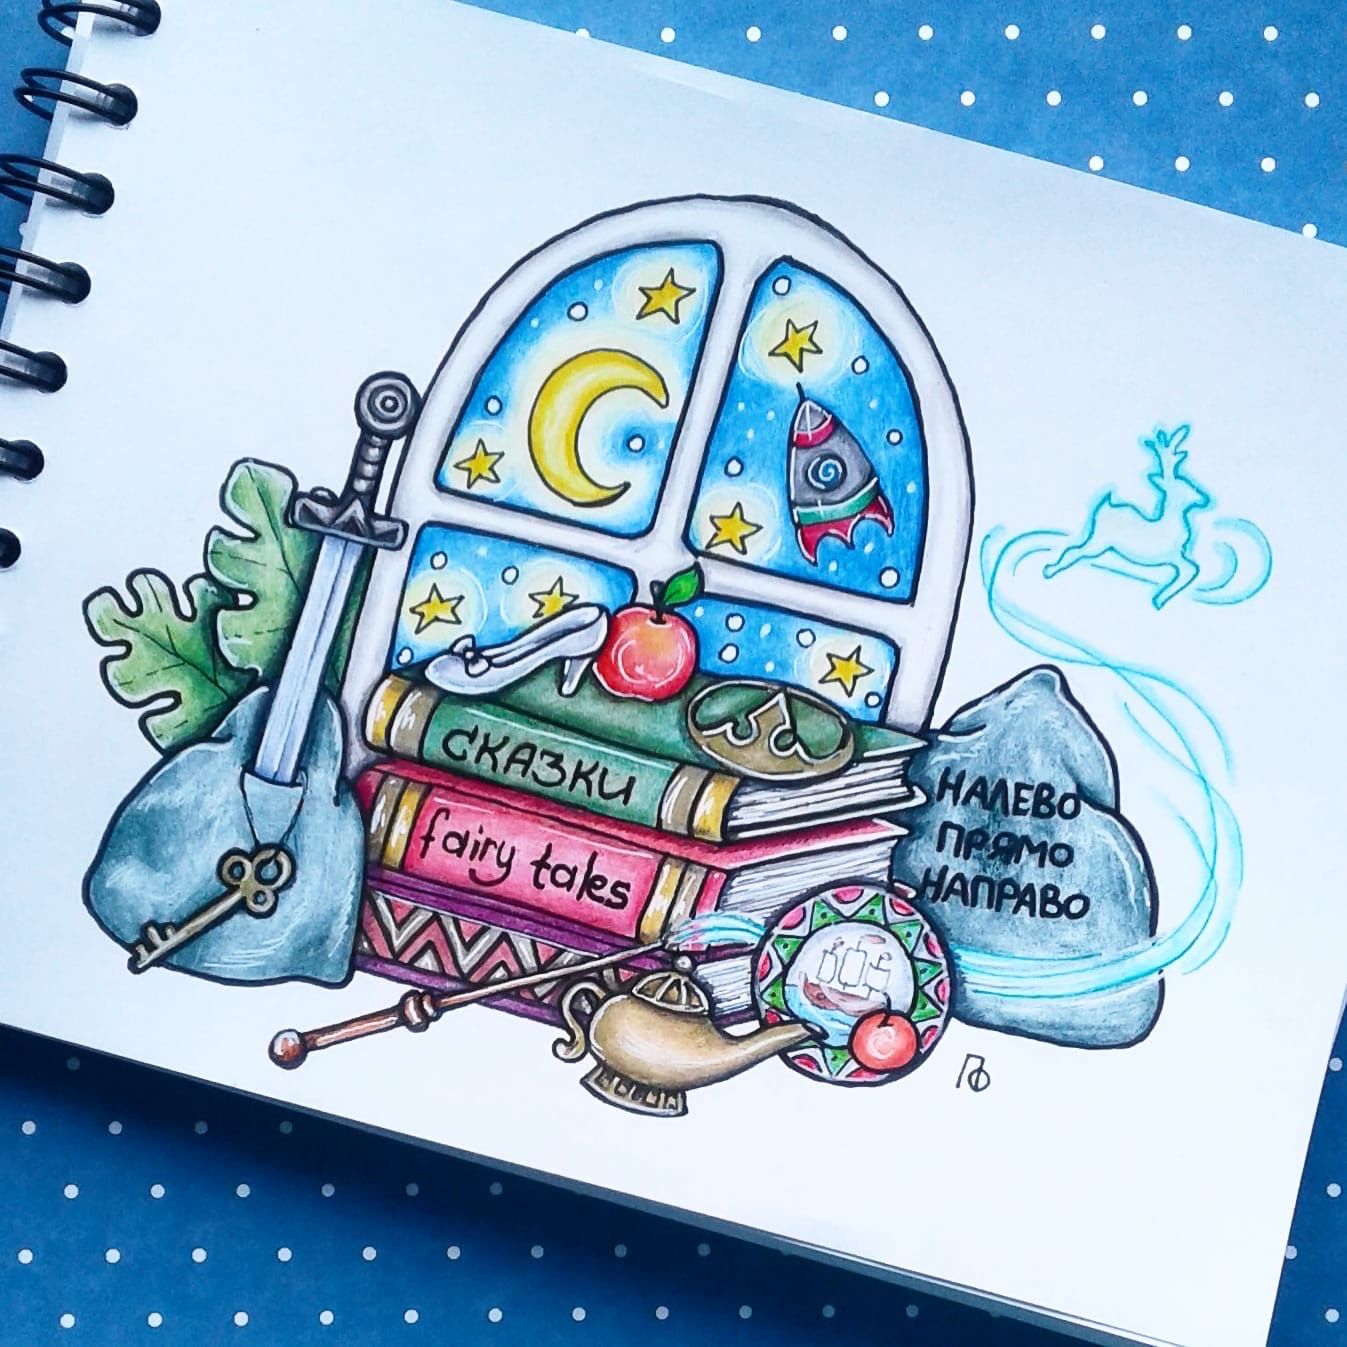 СКАЗКИ
fairy tales
НАЛЕВО
ПРЯМО
НАПРАВО
ПФ